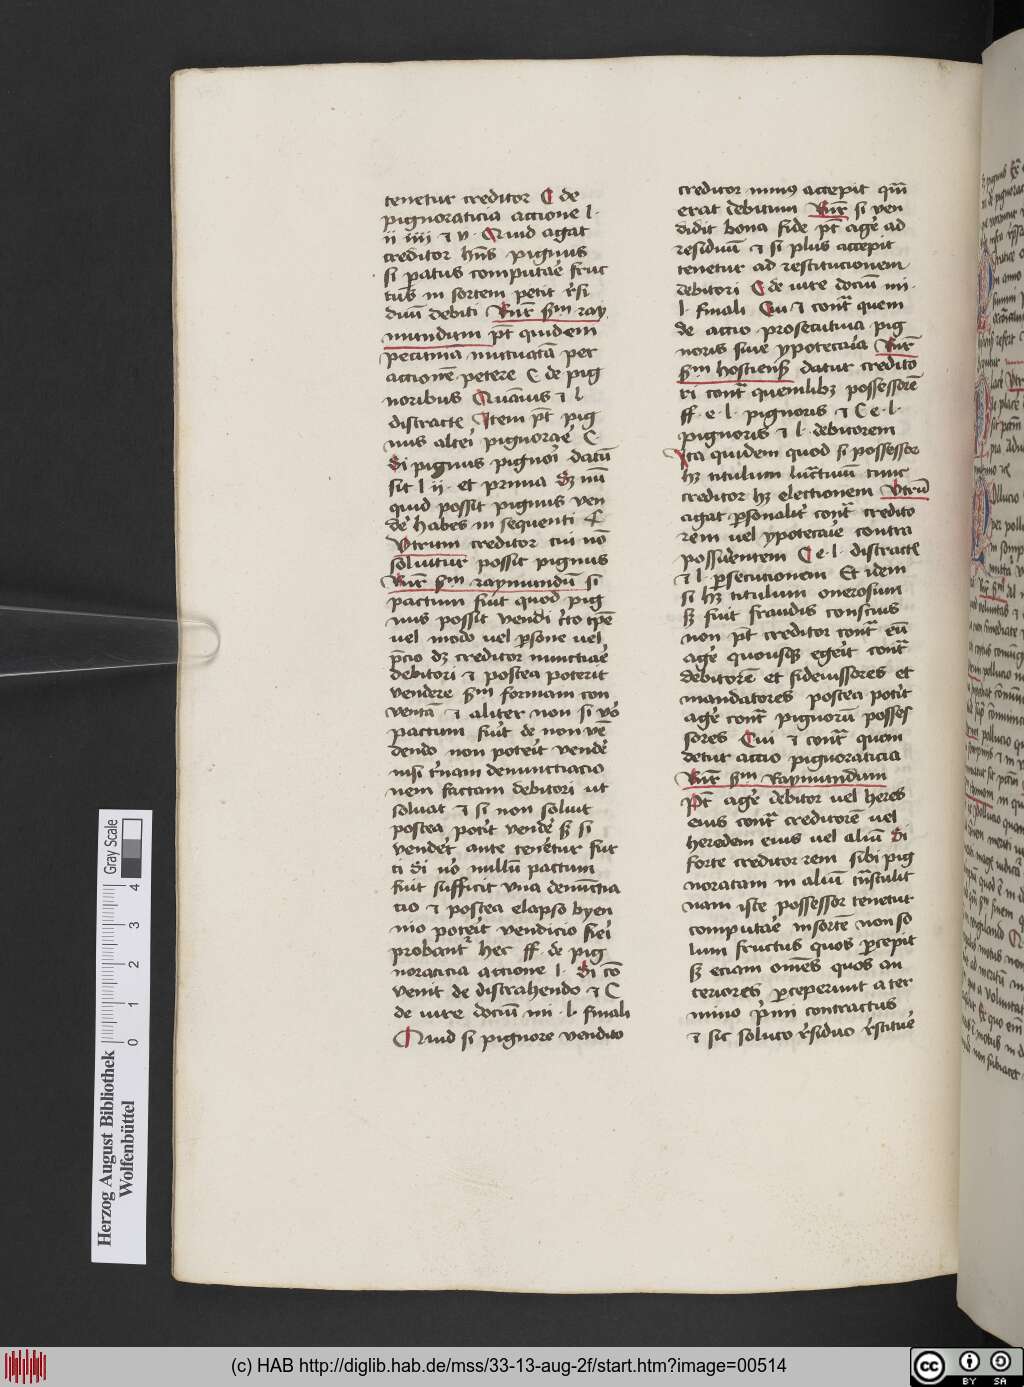 tenetur creditor C de
pignoraticia actione l·
ii iiii ⁊ v· Quid agat
creditor hn̄s pignus
si paratus computar̄e fruc
tus in sortem petit r̄si
duū debiti Rn̄r s̄m ray
mundum pt̄ quidem
pecunia mutuatā per
actionē petere C de pig
noribus Quāuis ⁊ l
distracte Item pt̄ pig
nus alteri pignorar̄e C·
Si pignus pignori datū
sit l ii· et prima Sz nū
quid possit pignus ven
der̄e habes in sequenti §
Vtrum creditor cui nō
soluitur possit pignus
Rn̄r s̄m raymundū si
pactum fuit quod pig
nus possit vendi cto tp̄e
uel modo uel persone uel
p̄cio dz creditor nunciar̄e
debitori ⁊ postea poterit
vendere s̄m formam con
ventā ⁊ aliter non si vo
pactum fuit de non vē
dendo non poterit vender̄e
nisi t̄nam denunctiacio
nem factam debitori ut
soluat ⁊ si non soluit
postea potit vender̄e sz si
venderet ante tenetur fur
ti Si vo nullū pactum
fuit sufficit vna denunctia
cio ⁊ postea elapso byen
nio poterit vendicio fieri
probantr hec ff· de pig
noraticia actione l· Si cō
venit de distrahendo ⁊ C
de iure dociū iii· l· finali
Quid si pignore vendito
creditor minus accepit qm̄
erat debitum Rn̄r si ven
didit bona fide pt̄ ager̄e ad
residuū ⁊ si plus accepit
tenetur ad restitucionem
debitori C de iure dociū iii·
l· finali Cui ⁊ contr̄ quem
de actio prosecutiua pig
noris siue ypotecaria Rn̄r
s̄m hostiens̄ datur credito
ri contr̄ quemlibz possessorē
ff· e· l· pignoris ⁊ C e· l·
pignoris ⁊ l· debitorem
Ita quidem quod si possessor
hz titulum lucratiuū tunc
creditor hz electionem Vtrū
agat personalit̄ contr̄ credito
rem uel ypotecarie contra
possidentem C e· l· distracte
⁊ l· persecutionem Et idem
si hz titulum onerosum
sz fuit fraudis conscius
non pt̄ creditor contr̄ eū
ager̄e quousqz egerit contr̄
debitorē et fideiussores et
mandatores postea potit
ager̄e contr̄ pignorū posses
sores Cui ⁊ contr̄ quem
detur actio pignoraticia
Rn̄r s̄m Raymundum
Pt̄ ager̄e debitor uel heres
eius contr̄ creditorē uel
heredem eius uel aliū Si
forte creditor rem sibi pig
noratam in aliū tn̄stulit
nam iste possessor tenetur
computar̄e in sortē non so
lum fructus quos percepit
sz eciam om̄es quos an
teriores perceperunt a ter
mino p̄mi contractus
⁊ sic soluto r̄siduo r̄stituer̄e
Herzog August Bibliothek
Wolfenbüttel
Gray Scale
0 1 2 3 4
(c) HAB http://diglib.hab.de/mss/33-13-aug-2f/start.htm?image=00514
cc BY SA